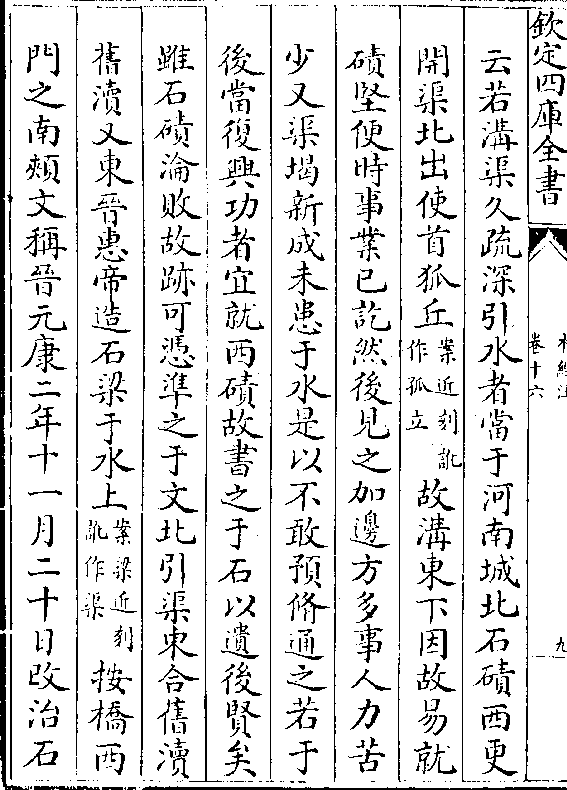 欽定四庫全書
卷十六
九
云若溝渠久疏深引水者當于河南城北石磧西更
開渠北出使首狐丘案近刻訛作孤立故溝東下因故易就
磧堅便時事業已訖然後見之加邊方多事人力苦
少又渠堨新成未患于水是以不敢預脩通之若于
後當復興功者宜就西磧故書之于石以遺後賢矣
雖石磧淪敗故跡可憑準之于文北引渠東合舊瀆
舊瀆又東晉惠帝造石梁于水上案梁近刻訛作渠按橋西
門之南頰文稱晉元康二年十一月二十日改治石